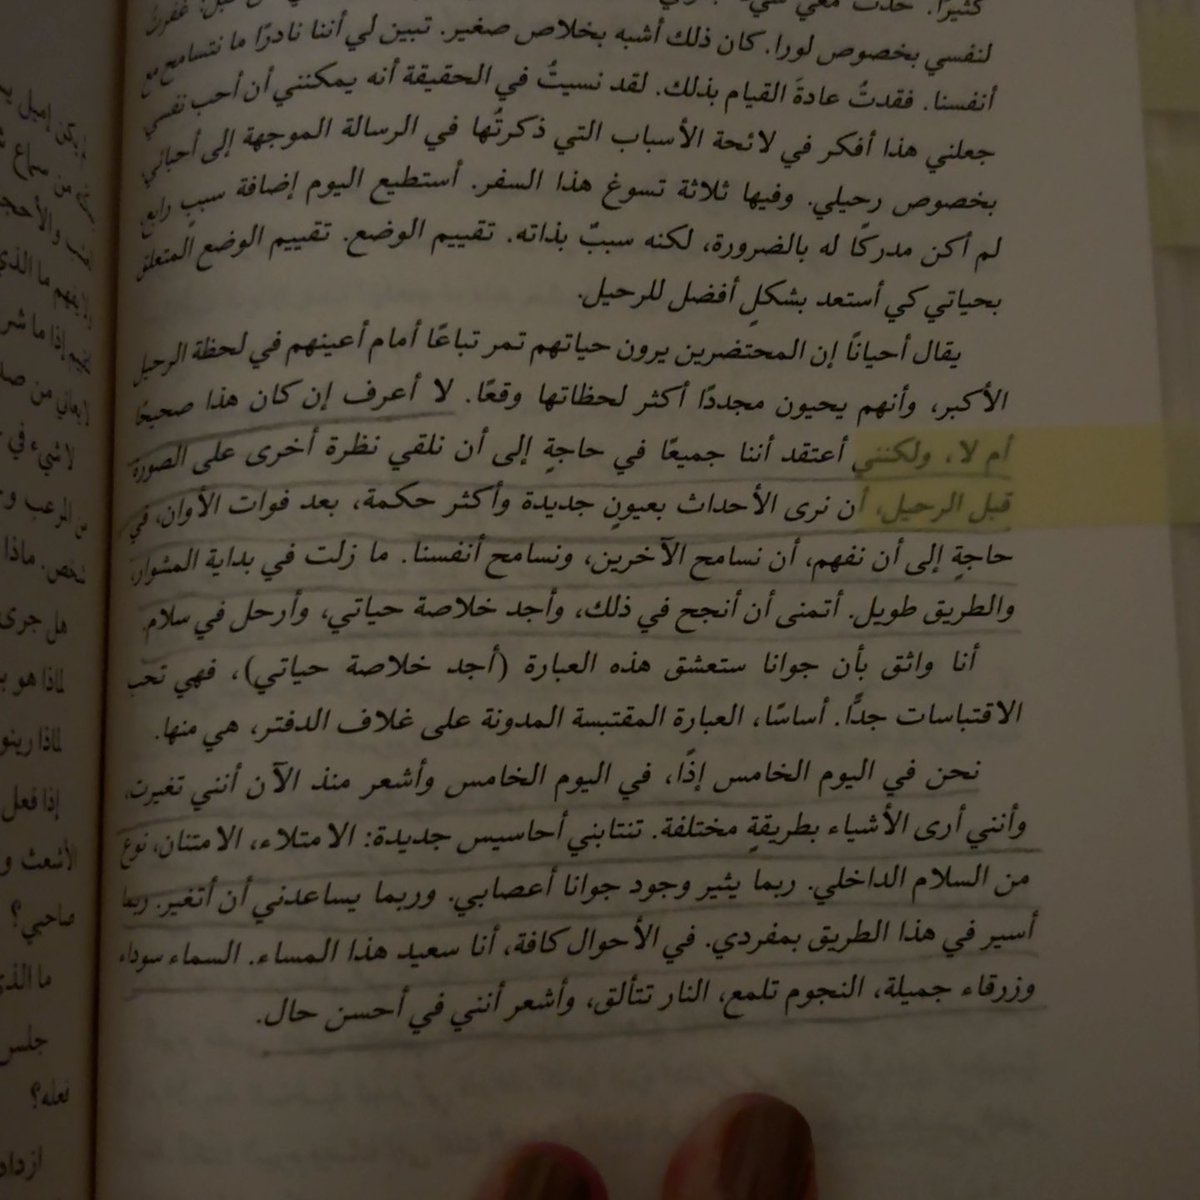 لنفسي بخصوص لورا. كان ذلك أشبه بخلاص صغير. تبين لي أننا نادرًا ما نتسامح مع
أنفسنا. فقدتُ عادةَ القيام بذلك. لقد نسيتُ في الحقيقة أنه يمكنني أن أحب نفسي
جعلني هذا أفكر في لائحة الأسباب التي ذكرتُها في الرسالة الموجهة إلى أحبائي
بخصوص رحيلي. وفيها ثلاثة تسوغ هذا السفر. أستطيع اليوم إضافة سببٍ رابع
لم أكن مدركًا له بالضرورة، لكنه سببٌ بذاته. تقييم الوضع. تقييم الوضع المتعلق
بحياتي كي أستعد بشكلٍ أفضل للرحيل.
يقال أحيانًا إن المحتضرين يرون حياتهم تمر تباعًا أمام أعينهم في لحظة الرحيل
الأكبر، وأنهم يحيون مجددًا أكثر لحظاتها وقعًا. لا أعرف إن كان هذا صحيحًا
أم لا، ولكنني أعتقد أننا جميعًا في حاجةٍ إلى أن نلقي نظرة أخرى على الصورة
قبل الرحيل، أن نرى الأحداث بعيونٍ جديدة وأكثر حكمة، بعد فوات الأوان، في
حاجةٍ إلى أن نفهم، أن نسامح الآخرين، ونسامح أنفسنا. ما زلت في بداية المشوار،
والطريق طويل. أتمنى أن أنجح في ذلك، وأجد خلاصة حياتي، وأرحل في سلام.
أنا واثق بأن جوانا ستعشق هذه العبارة (أجد خلاصة حياتي)، فهي تحب
الاقتباسات جدًّا. أساسًا، العبارة المقتبسة المدونة على غلاف الدفتر، هي منها.
نحن في اليوم الخامس إذًا، في اليوم الخامس وأشعر منذ الآن أنني تغيرت،
وأنني أرى الأشياء بطريقةٍ مختلفة. تنتابني أحاسيس جديدة: الامتلاء، الامتنان، نوع
من السلام الداخلي. ربما يثير وجود جوانا أعصابي. وربما يساعدني أن أتغير. ربما
أسير في هذا الطريق بمفردي. في الأحوال كافة، أنا سعيد هذا المساء. السماء سوداء
وزرقاء جميلة، النجوم تلمع، النار تتألق، وأشعر أنني في أحسن حال.